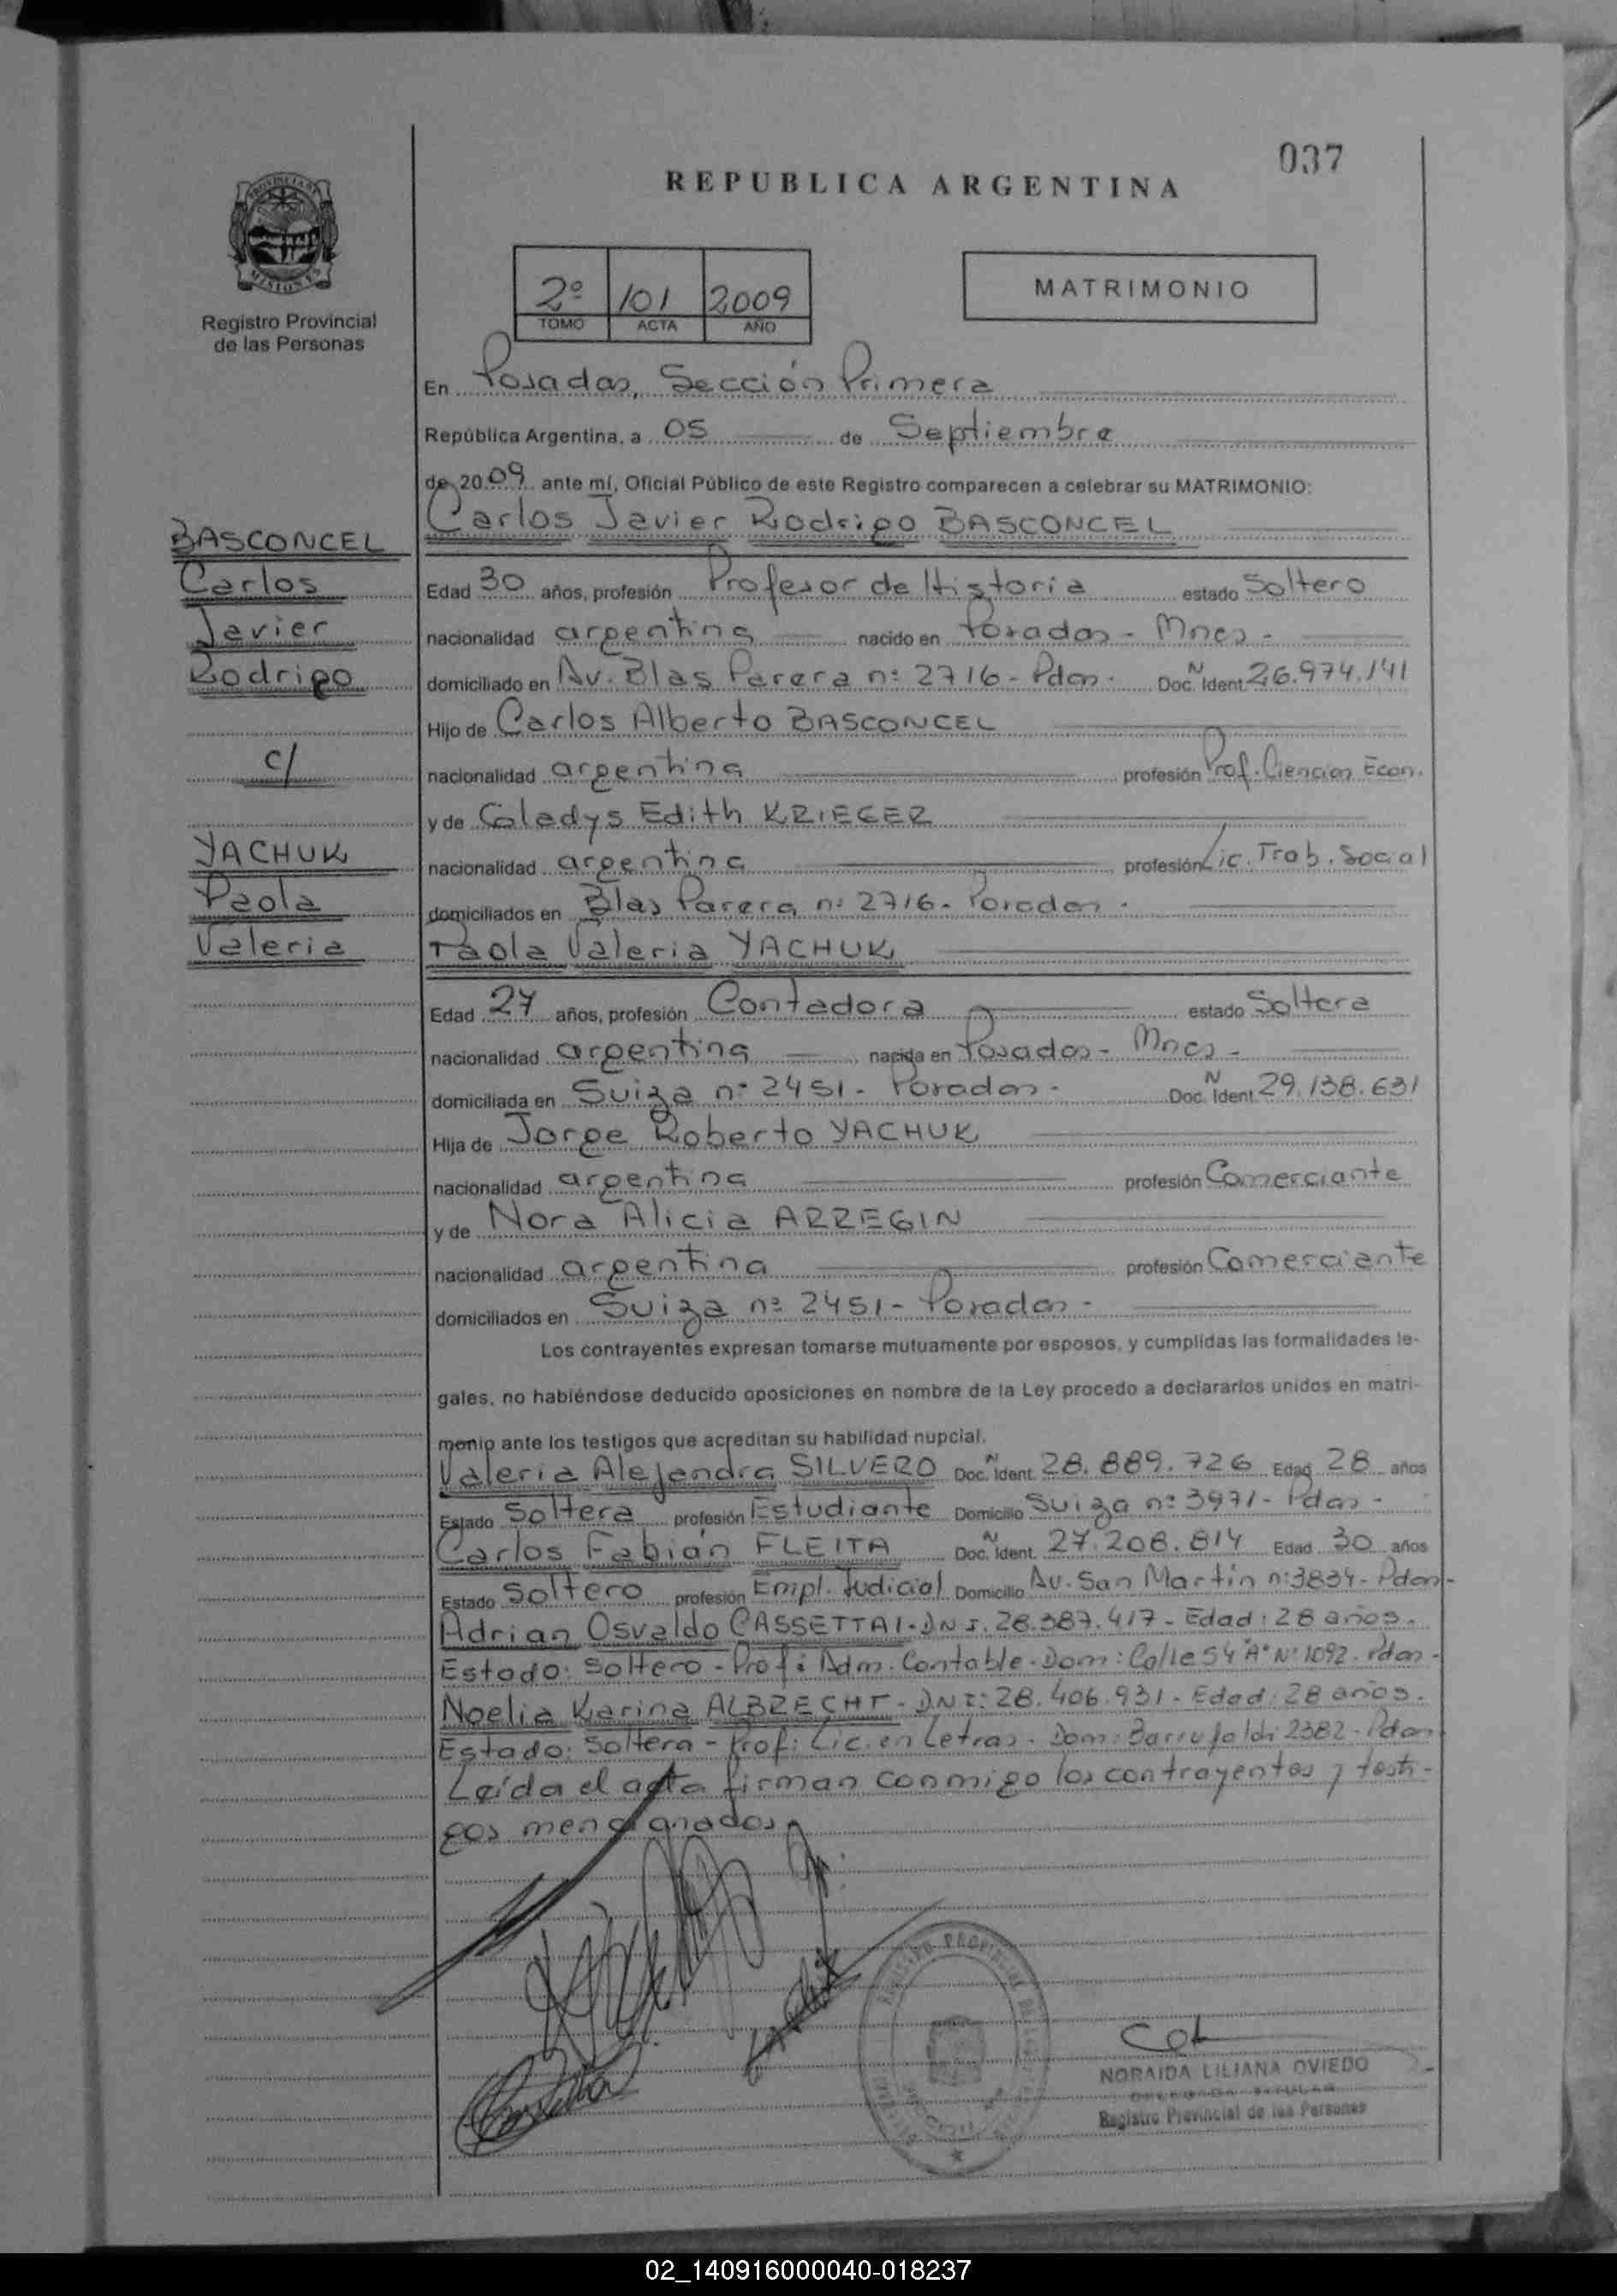 037
REPUBLICA ARGENTINA
MATRIMONIO
2º 101 2009
TOMO ACTA AÑO
Registro Provincial
de las Personas
En Posadas, Sección Primera
República Argentina, a 05 de Septiembre
de 2009 ante mí, Oficial Público de este Registro comparecen a celebrar su MATRIMONIO:
Carlos Javier Rodrigo BASCONCEL
BASCONCEL
Carlos
Javier
Rodrigo
c/
YACHUK
Paola
Valeria
Edad 30 años, profesión Profesor de Historia estado Soltero
nacionalidad argentina nacido en Posadas - Mnes -
domiciliado en Av. Blas Parera nº 2716 - Pdas. Doc. N Ident. 26.974.141
Hijo de Carlos Alberto BASCONCEL
nacionalidad argentina profesión Prof. Ciencias Econ.
y de Gladys Edith KRIEGER
nacionalidad argentina profesión Lic. Trab. Social
domiciliados en Blas Parera nº 2716 - Posadas -
Paola Valeria YACHUK
Edad 27 años, profesión Contadora estado Soltera
nacionalidad argentina nacida en Posadas - Mnes -
domiciliada en Suiza nº 2451 - Posadas - Doc. N Ident. 29.138.631
Hija de Jorge Roberto YACHUK
nacionalidad argentina profesión Comerciante
y de Nora Alicia ARREGIN
nacionalidad argentina profesión Comerciante
domiciliados en Suiza nº 2451 - Posadas -
Los contrayentes expresan tomarse mutuamente por esposos, y cumplidas las formalidades le-
gales, no habiéndose deducido oposiciones en nombre de la Ley procedo a declararlos unidos en matri-
monio ante los testigos que acreditan su habilidad nupcial.
Valeria Alejandra SILVERO Doc. N Ident. 28.889.726 Edad 28 años
Estado Soltera profesión Estudiante Domicilio Suiza nº 3971 - Pdas -
Carlos Fabián FLEITA Doc. N Ident. 27.208.814 Edad 30 años
Estado Soltero profesión Empl. Judicial Domicilio Av. San Martín nº 3834 - Pdas -
Adrian Osvaldo CASSETTAI - DNI. 28.387.417 - Edad: 28 años.
Estado: Soltero - Prof: Adm. Contable - Dom: Calle 54 "A" Nº 1092 - Pdas -
Noelia Karina ALBRECHT - DNI: 28.406.931 - Edad: 28 años.
Estado: Soltera - Prof: Lic. en Letras - Dom: Barrufaldi 2382 - Pdas
Leída el acta firman conmigo los contrayentes y testi-
gos mencionados
NORAIDA LILIANA OVIEDO
Registro Provincial de las Personas
02_140916000040-018237